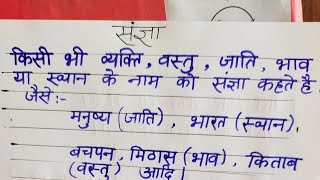 संज्ञा
किसी भी व्यक्ति, वस्तु, जाति, भाव
या स्थान के नाम को संज्ञा कहते है
जैसे:-
मनुष्य (जाति), भारत (स्थान),
बचपन, मिठास (भाव), किताब
(वस्तु) आदि।